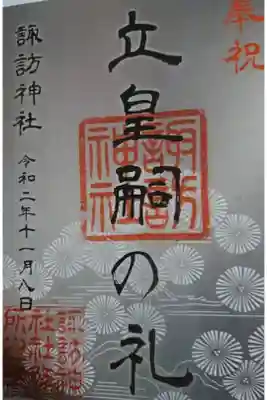 奉祝
立皇嗣の礼
諏訪神社
諏訪神社
令和二年十一月八日